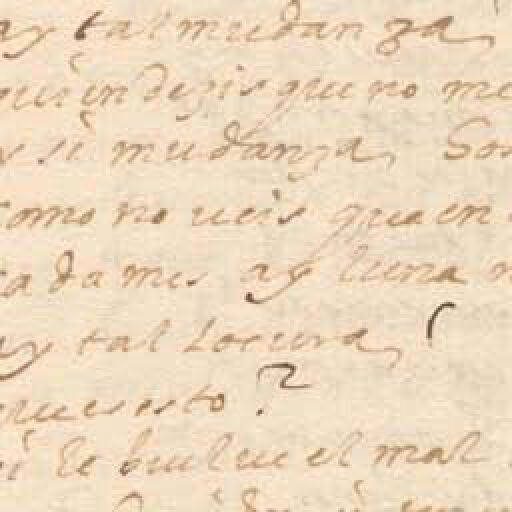 ay tal mudanza,
quien dezis que no me
y si mudanza, Son
como no ueis que en
cada mes ay luna n
ay tal Locura, (
que es esto?
si le buelue el mal